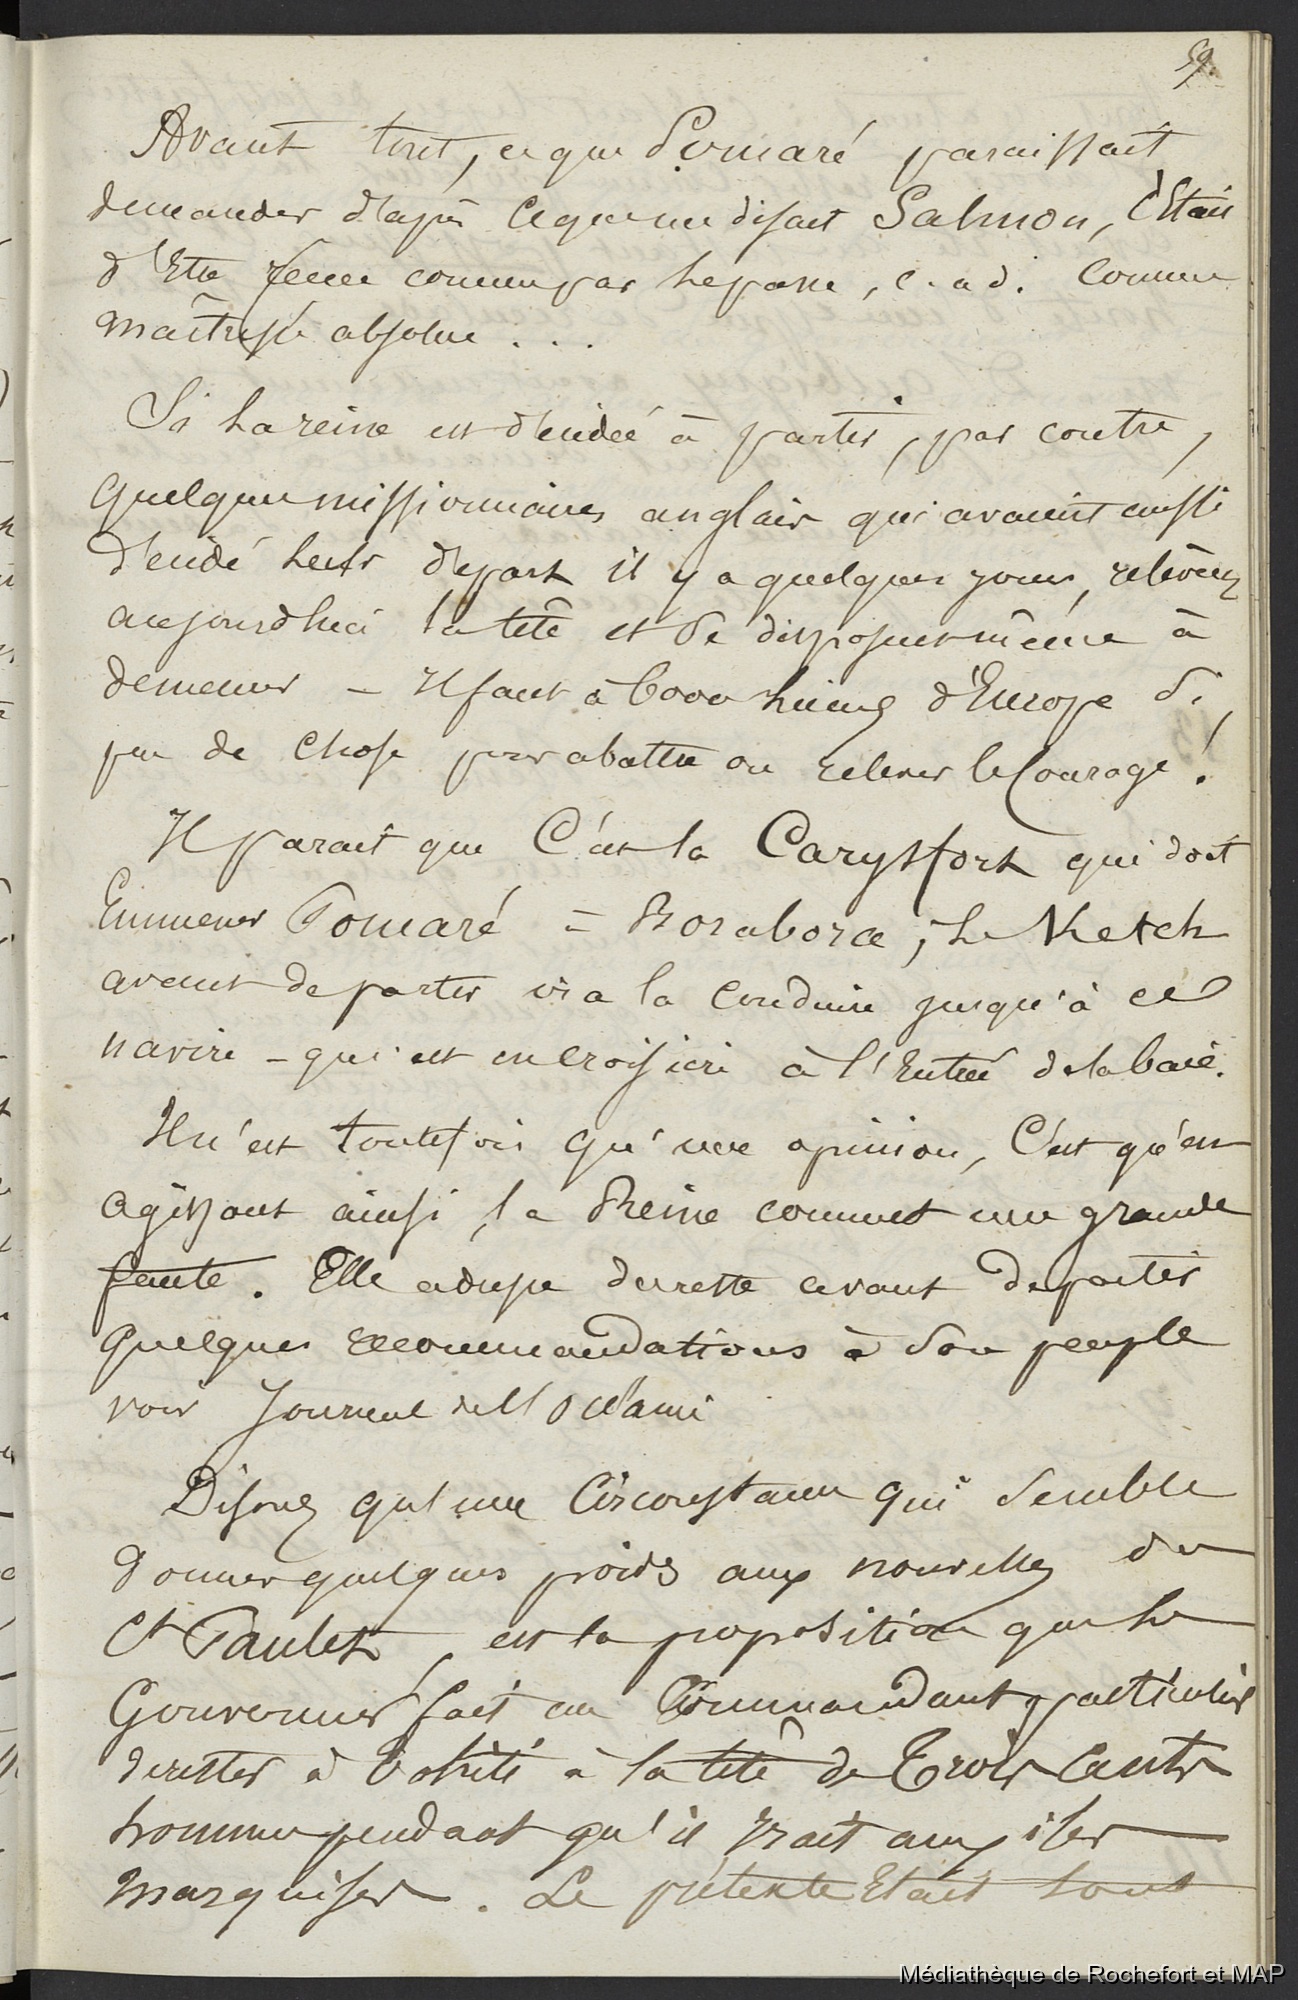 59.
Avant tout, ce que Pomaré paraissait
demander d'après ce que me disait Salmon, c'était
d'Etre Reine comme par le passé, c. a d. comme
maîtresse absolue . . .
Si la reine est décidée à partir, par contre,
quelques missionnaires anglais qui avaient aussi
décidé leur départ il y a quelques jours, relèvent
aujourdhui la tête et se disposent même à
demeurer – Il faut à 6000 lieues d'Europe si
peu de chose pour abattre ou relever le Courage !
Il parait que C'est la Carysfort qui doit
Emmener Pomaré à Borabora, le Ketch
avant de partir va la conduire jusqu'à ce
navire – qui est en croisière à l'Entrée de la baie.
Il n'est toutefois qu'une opinion, C'est qu'en
agissant ainsi, la Reine commet une grande
faute. Elle adresse du reste avant de partir
quelques recommandations à son peuple
voir Journal de l'Océanie
Disons qu'une Circonstance qui semble
donner quelques poids aux nouvelles du
Ct Paulet, est la proposition que le
Gouverneur fait au Commandant particulier
de rester à Tahiti à la tête de Trois Cents
hommes pendant qu'il irait aux iles
marquises. Le prétexte Etait tout
Médiathèque de Rochefort et MAP